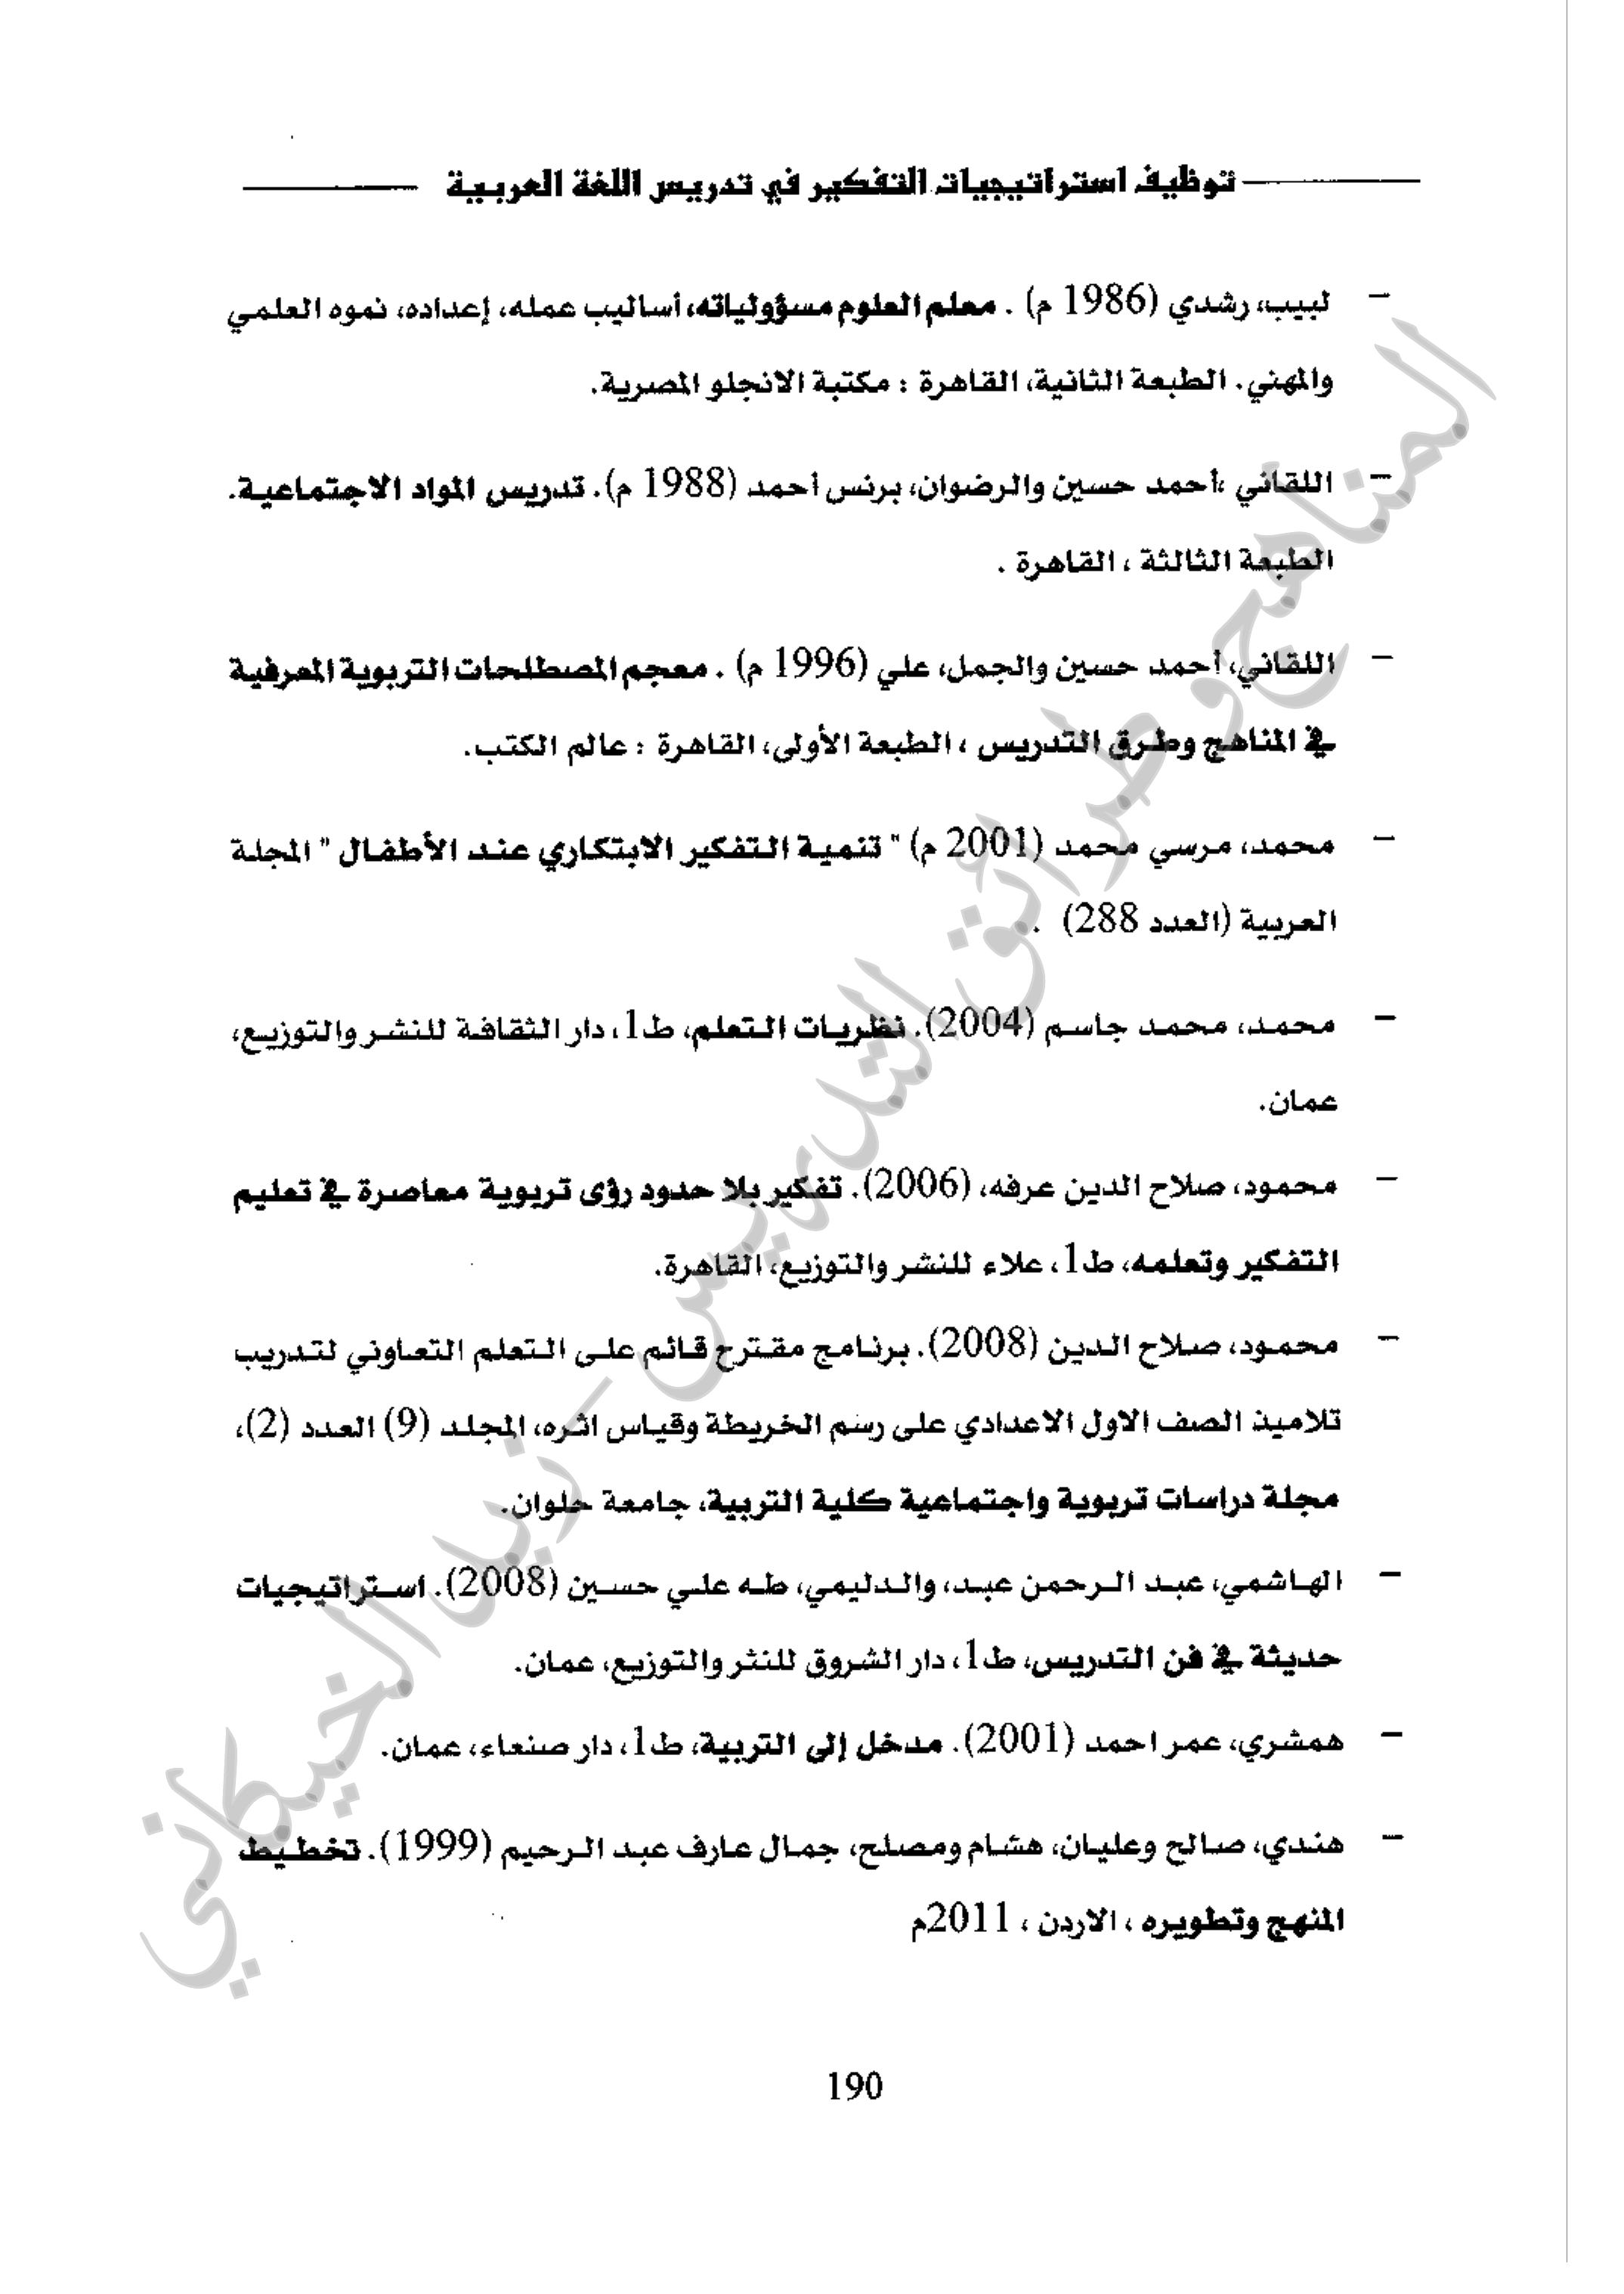 توظيف استراتيجيات التفكير في تدريس اللغة العربية
– لبيب، رشدي (1986 م) . معلم العلوم مسؤولياته، أساليب عمله، إعداده، نموه العلمي
والمهني. الطبعة الثانية، القاهرة : مكتبة الانجلو المصرية.
– اللقاني ،أحمد حسين والرضوان، برنس أحمد (1988 م). تدريس المواد الاجتماعية.
الطبعة الثالثة ، القاهرة .
– اللقاني، أحمد حسين والجمل، علي (1996 م) . معجم المصطلحات التربوية المعرفية
في المناهج وطرق التدريس ، الطبعة الأولى، القاهرة : عالم الكتب.
– محمد، مرسي محمد (2001 م) " تنمية التفكير الابتكاري عند الأطفال " المجلة
العربية (العدد 288) .
– محمد، محمد جاسم (2004). نظريات التعلم، ط1، دار الثقافة للنشر والتوزيع،
عمان.
– محمود، صلاح الدين عرفه، (2006). تفكير بلا حدود رؤى تربوية معاصرة في تعليم
التفكير وتعلمه، ط1، علاء للنشر والتوزيع، القاهرة.
– محمود، صلاح الدين (2008). برنامج مقترح قائم على التعلم التعاوني لتدريب
تلاميذ الصف الاول الاعدادي على رسم الخريطة وقياس اثره، المجلد (9) العدد (2)،
مجلة دراسات تربوية واجتماعية كلية التربية، جامعة حلوان.
– الهاشمي، عبد الرحمن عبد، والدليمي، طه علي حسين (2008). استراتيجيات
حديثة في فن التدريس، ط1، دار الشروق للنثر والتوزيع، عمان.
– همشري، عمر احمد (2001). مدخل إلى التربية، ط1، دار صنعاء، عمان.
– هندي، صالح وعليان، هشام ومصلح، جمال عارف عبد الرحيم (1999). تخطيط
المنهج وتطويره ، الاردن ، 2011م
190
المناهج وطرائق التدريس – زيد الخيكاني